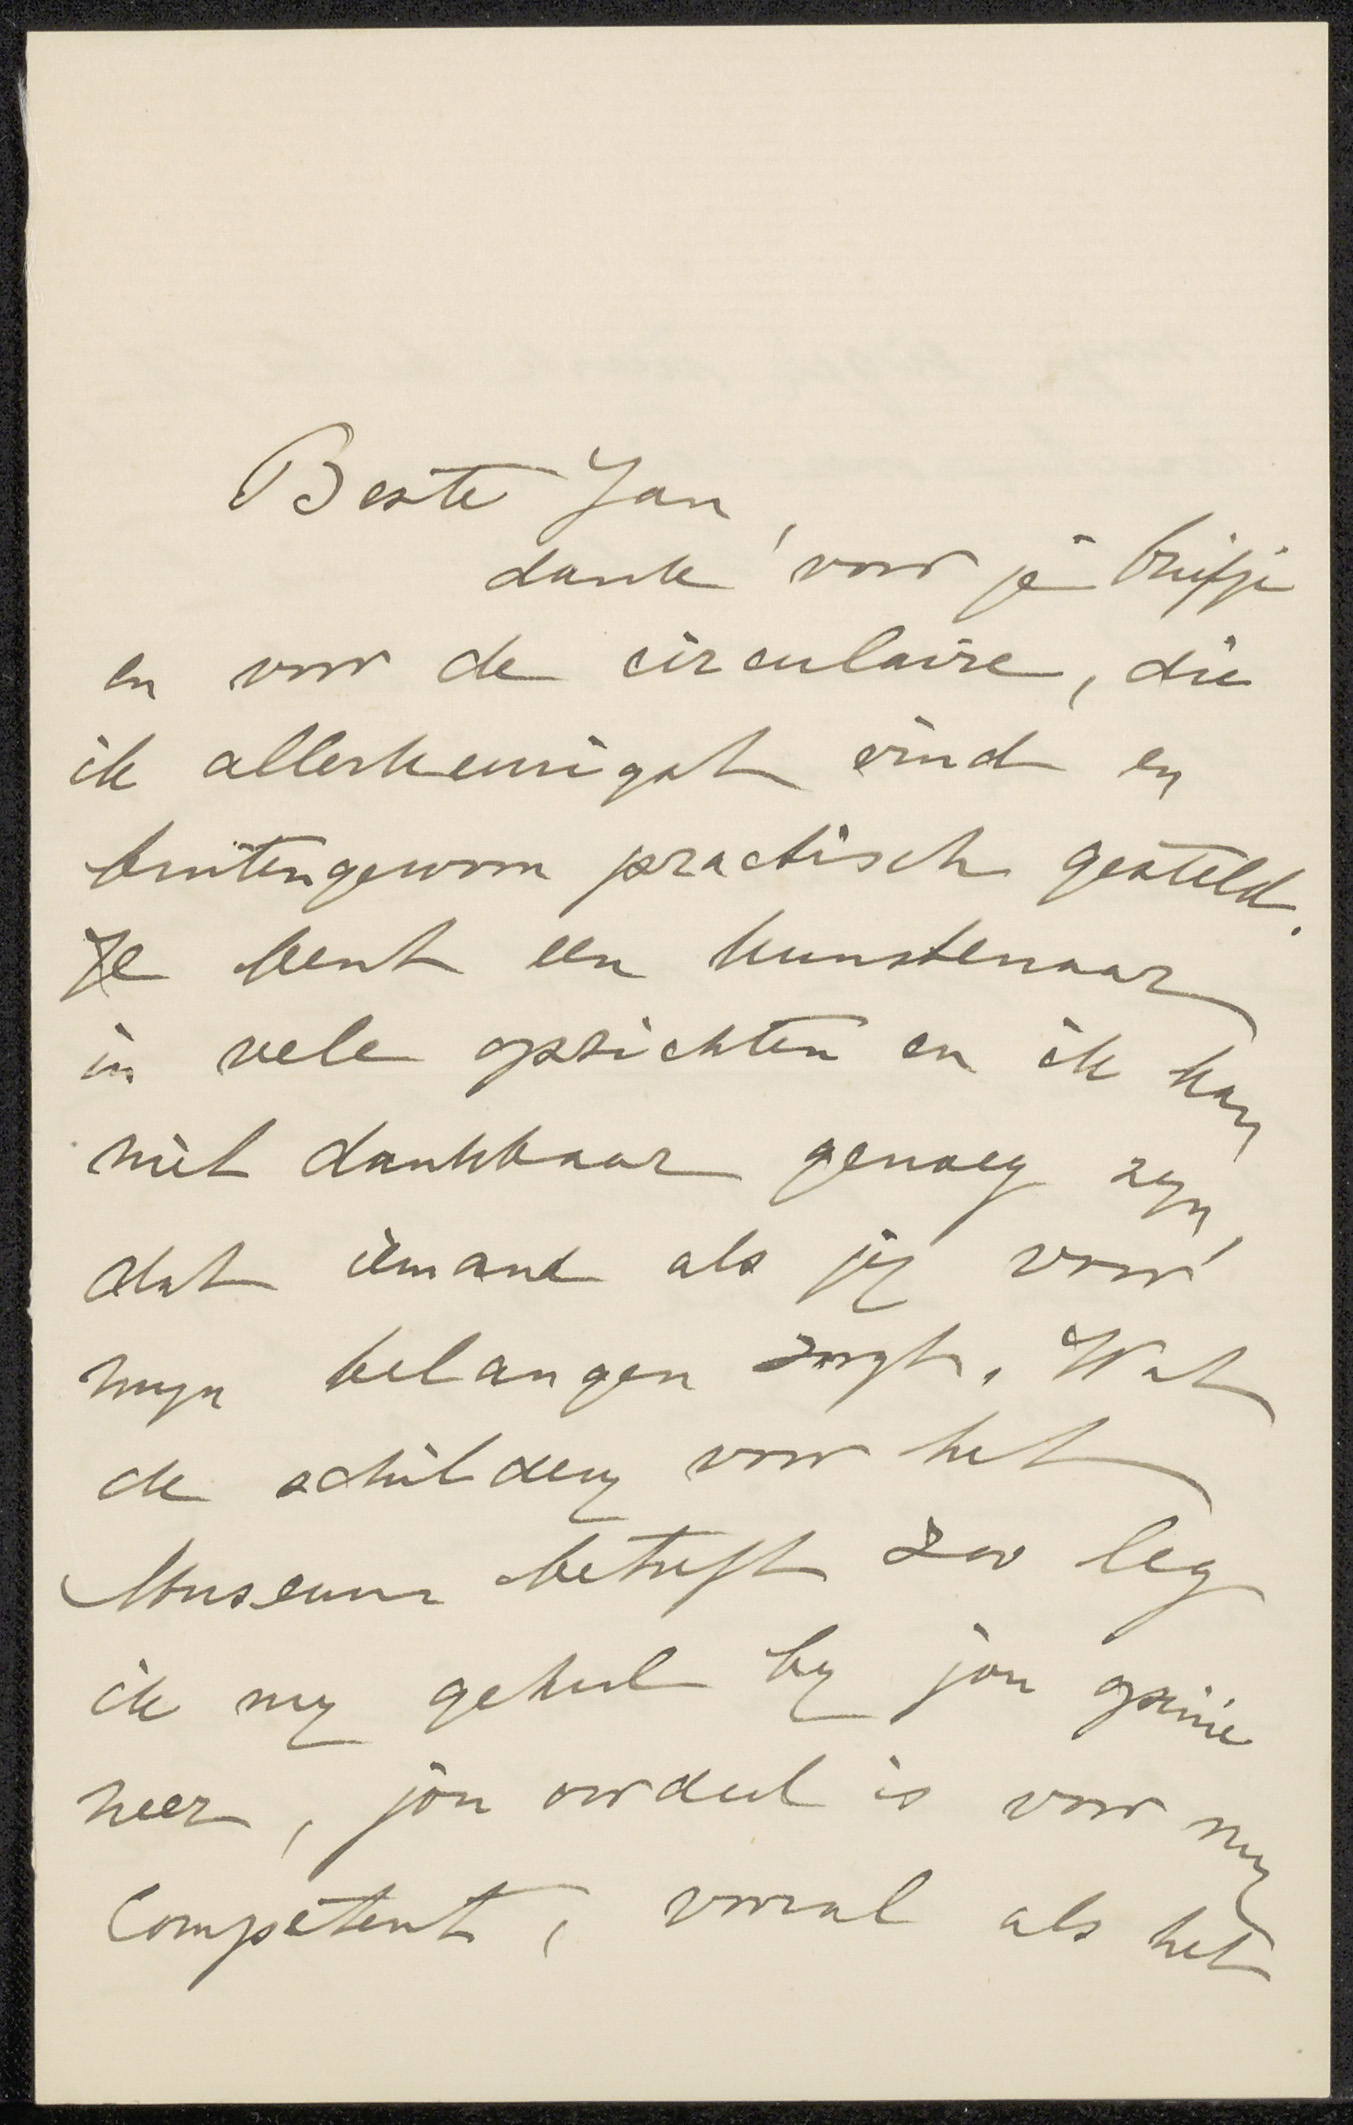 Beste Jan,
dank voor je briefje
en voor de circulaire, die
ik allerkeurigst vind en
buitengewoon practisch gesteld.
Je bent een kunstenaar
in vele opzichten en ik kan
niet dankbaar genoeg zyn,
dat iemand als jy voor
myn belangen zorgt. Wat
de schildery voor het
Museum betreft zoo leg
ik my geheel by jou opinie
neer, jou oordeel is voor my
competent, vooral als het